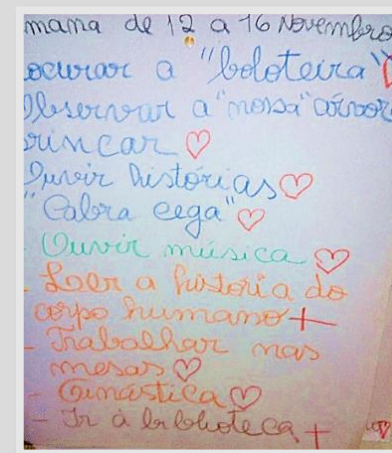 mana de 12 a 16 Novembro
ocurar a "boloteira"
Observar a "nossa" árvor
rincar
Ouvir histórias
"Cabra cega"
Ouvir música
- Ler a história do
corpo humano +
- Trabalhar nas
mesas
- Ginástica
- Ir à biblioteca +